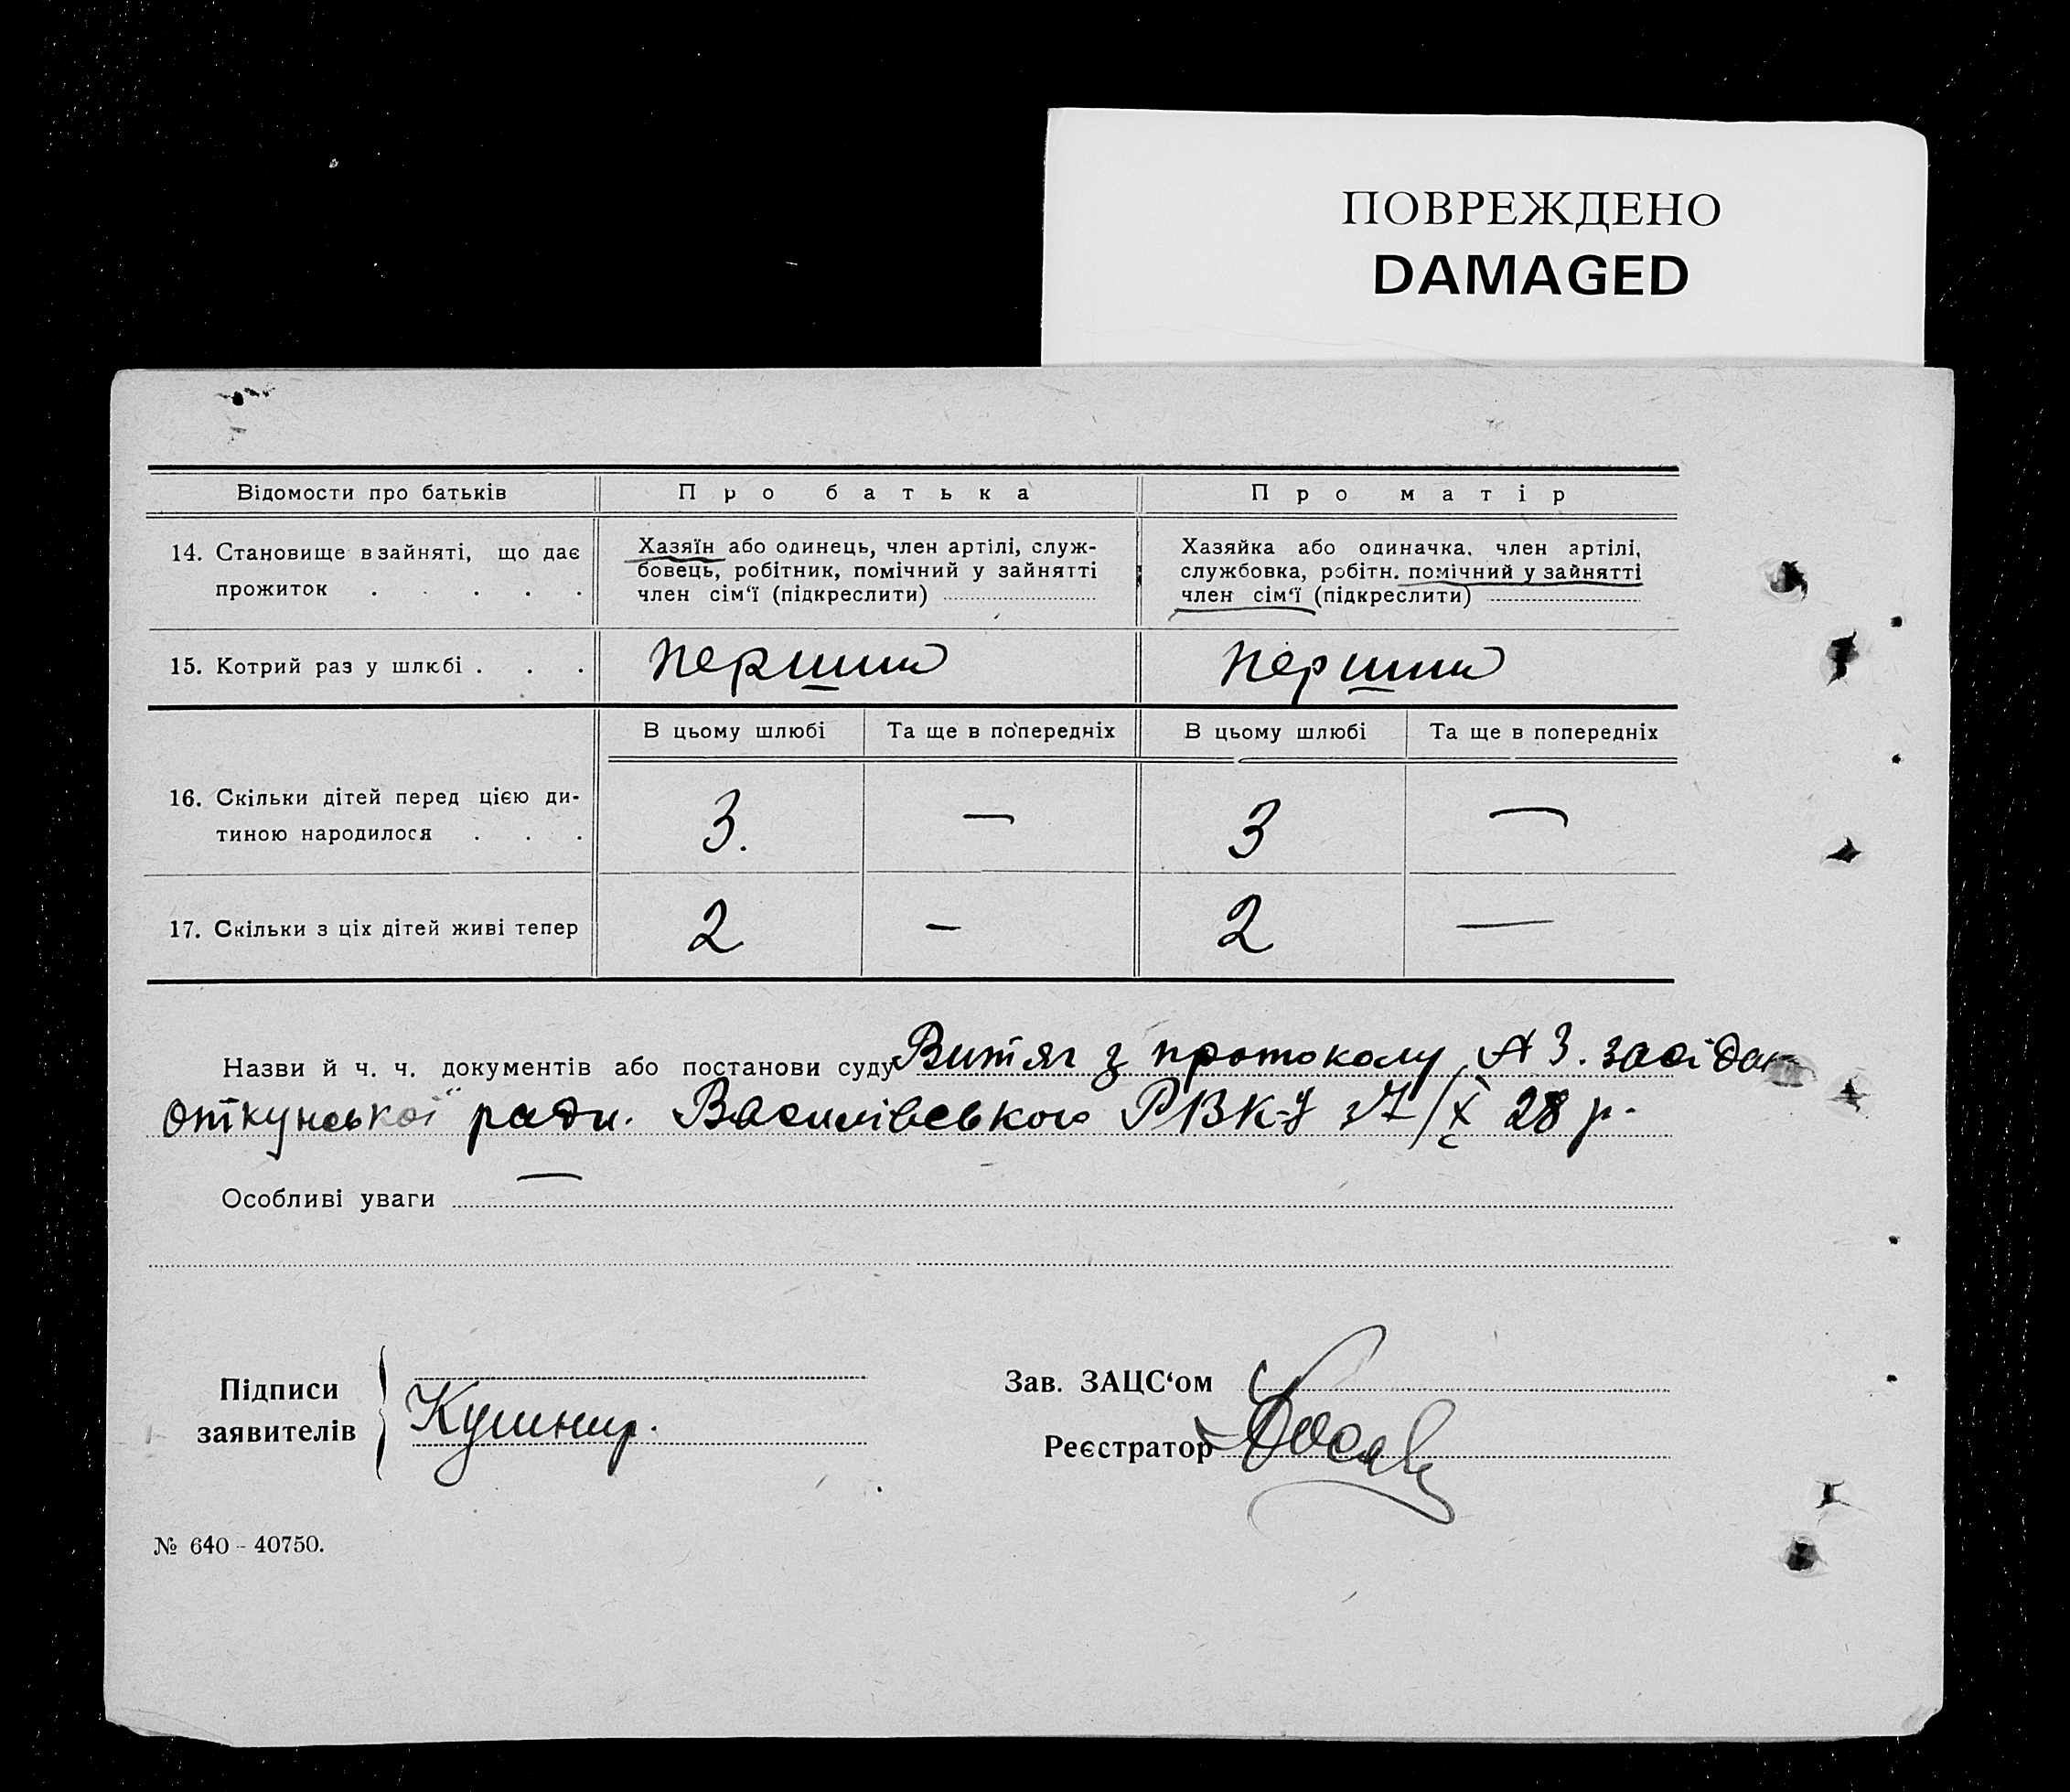 ПОВРЕЖДЕНО
DAMAGED
Відомости про батьків Про батька Про матір
14. Становище в зайняті, що дає прожиток . . . . .
Хазяїн або одинець, член артілі, служ-
бовець, робітник, помічний у зайнятті
член сім‘ї (підкреслити)
Хазяйка або одиначка, член артілі,
службовка, робітн. помічний у зайнятті
член сім‘ї (підкреслити)
15. Котрий раз у шлюбі . . . перший перший
В цьому шлюбі Та ще в попередніх В цьому шлюбі Та ще в попередніх
16. Скільки дітей перед цією ди-
тиною народилося . . . 3. — 3 —
17. Скільки з ціх дітей живі тепер 2 — 2 —
Назви й ч. ч. документів або постанови суду Витяг з протоколу № 3. засідан
ради. Василівського РВК-у 28 р.
Особливі уваги —
Підписи
заявителів
Кушнир.
Зав. ЗАЦС‘ом
Реєстратор
№ 640 - 40750.